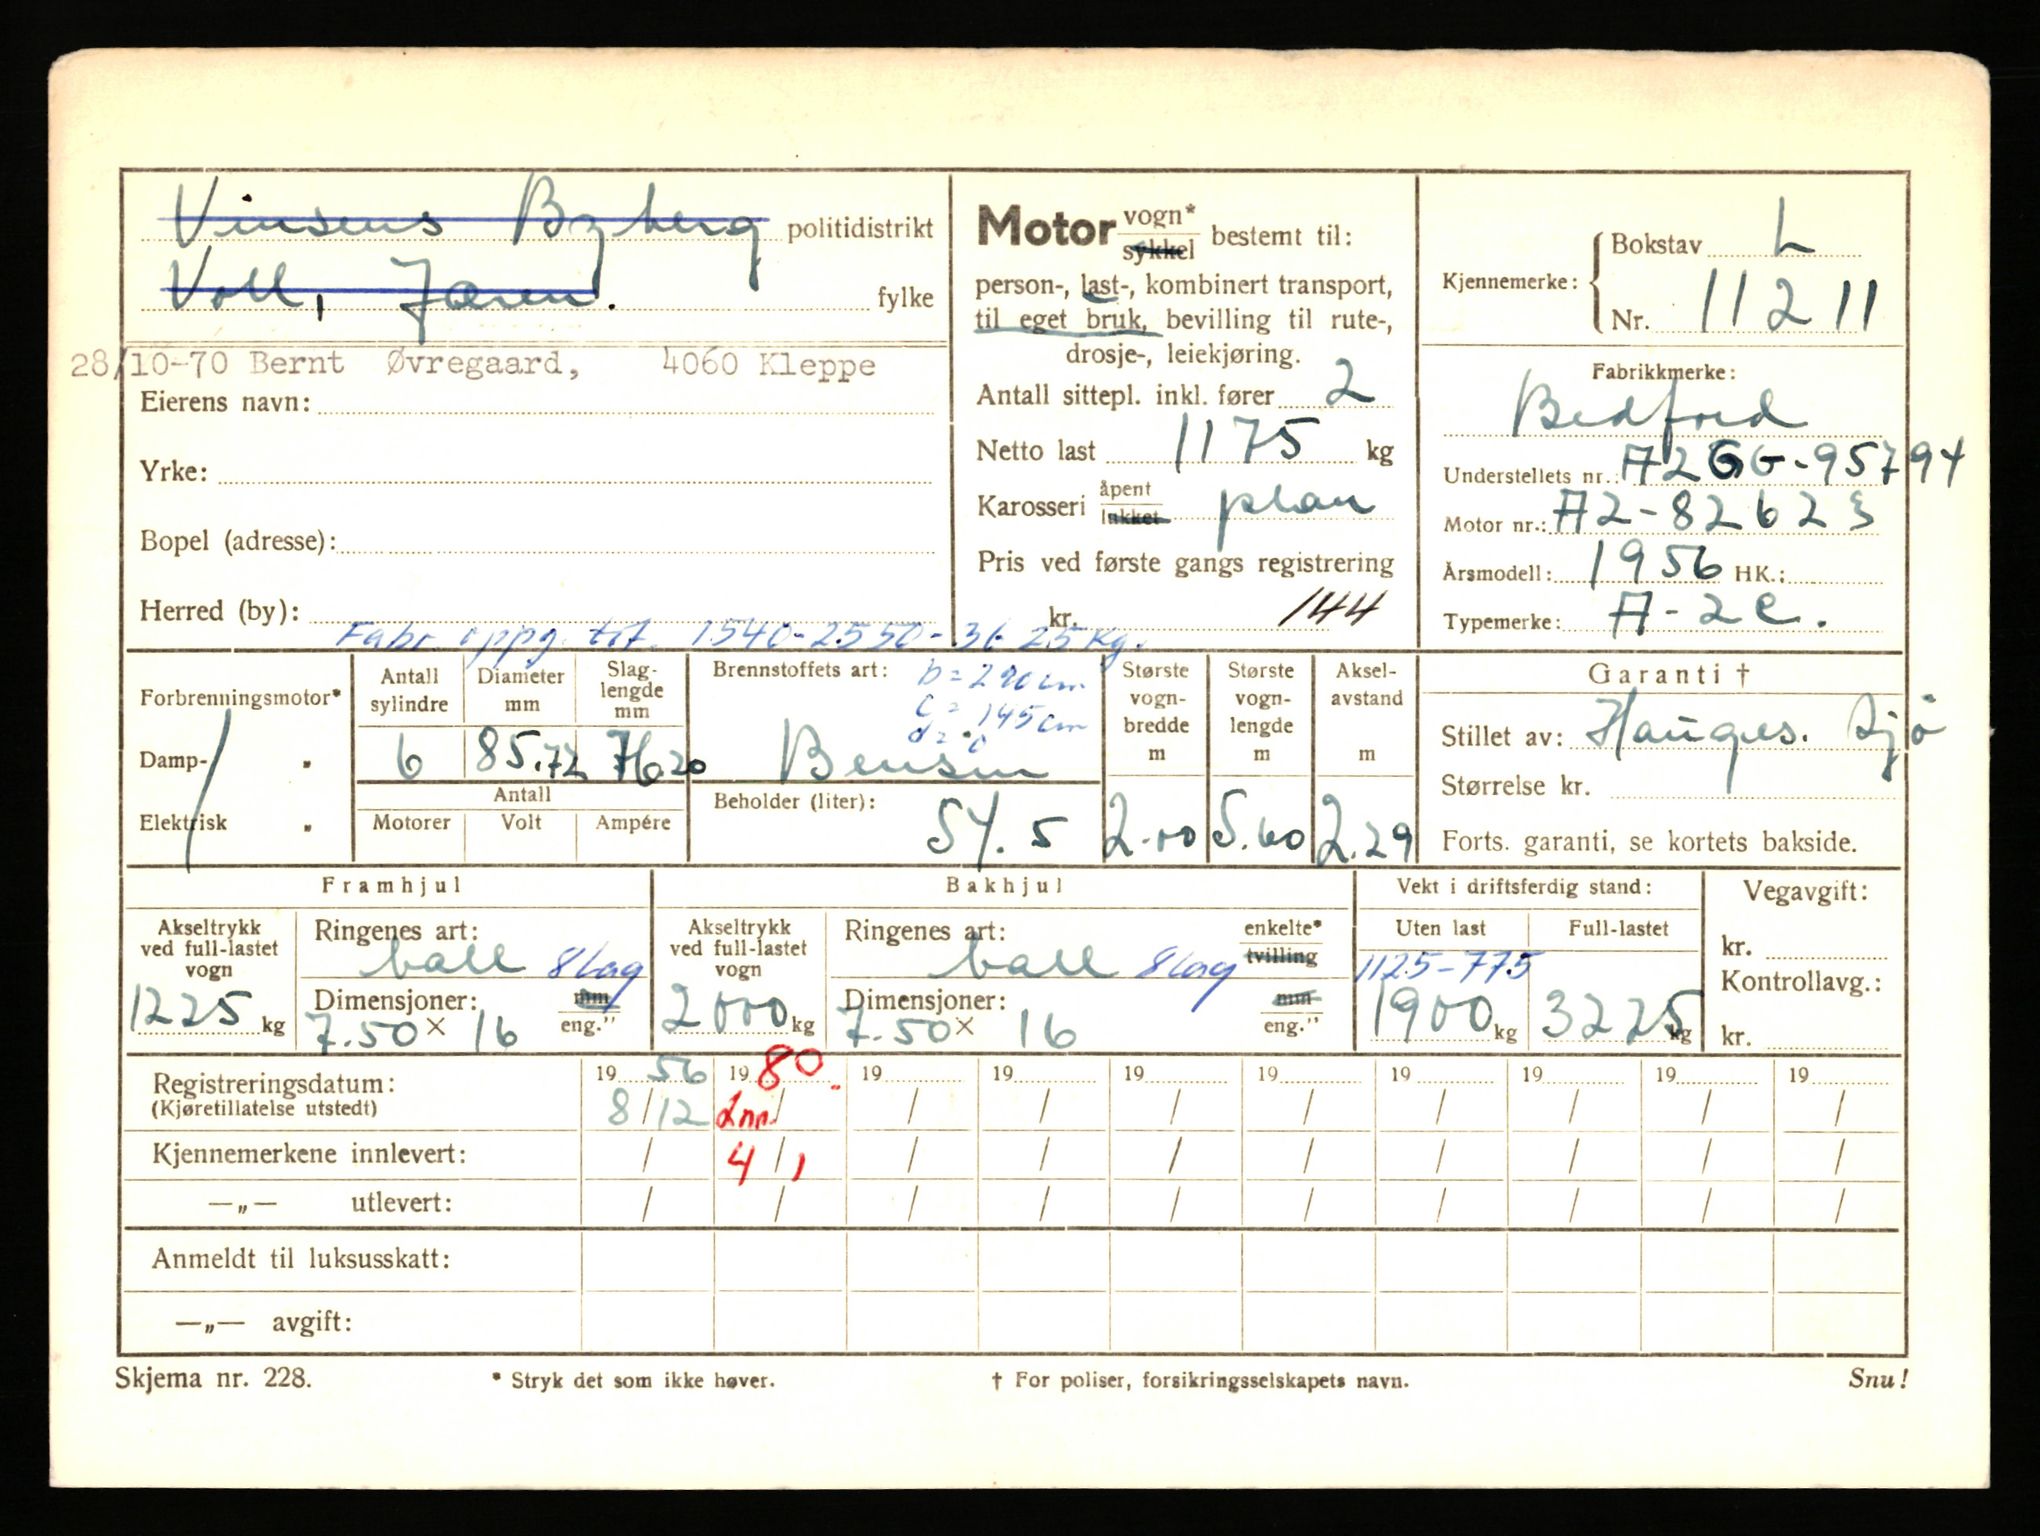 Vinsens Byberg politidistrikt
Voll, Jæren. fylke
28/10-70 Bernt Øvregaard, 4060 Kleppe
Eierens navn:
Yrke:
Bopel (adresse):
Herred (by):
Fabr. oppg. tot. 1540-2550-3625 kg.
Motor vogn* sykkel bestemt til:
person-, last-, kombinert transport,
til eget bruk, bevilling til rute-,
drosje-, leiekjøring.
Antall sittepl. inkl. fører 2
Netto last 1175 kg
Karosseri åpent lukket plan
Pris ved første gangs registrering
kr. 144
Kjennemerke: Bokstav L
Nr. 11211
Fabrikkmerke:
Bedford
Understellets nr.: A2GG-95794
Motor nr.: A2-82623
Årsmodell: 1956 HK.:
Typemerke: A-2C.
Forbrenningsmotor*
Damp- "
Elektrisk "
Antall sylindre 6
Diameter mm 85.72
Slag-lengde mm 76.20
Antall
Motorer Volt Ampére
Brennstoffets art: b = 290 cm
c = 145 cm
d = 0
Bensin
Beholder (liter): 54.5
Største vogn-bredde m 2.00
Største vogn-lengde m 5.60
Aksel-avstand m 2.29
Garanti †
Stillet av: Hauges. Sjø
Størrelse kr.
Forts. garanti, se kortets bakside.
Framhjul
Akseltrykk ved full-lastet vogn 1225 kg
Ringenes art: ball 8 lag
Dimensjoner: mm eng."
7.50 × 16
Bakhjul
Akseltrykk ved full-lastet vogn 2000 kg
Ringenes art: ball 8 lag enkelte* tvilling
Dimensjoner: mm eng."
7.50 × 16
Vekt i driftsferdig stand:
Uten last Full-lastet
1125-775
1900 kg 3225 kg
Vegavgift:
kr.
Kontrollavg.:
kr.
Registreringsdatum: 19 56 19 80 19 19 19 19 19 19 19 19
(Kjøretillatelse utstedt) 8/12 Inn / / / / / / / / /
Kjennemerkene innlevert: / 4/1 / / / / / / / /
—„— utlevert: / / / / / / / / /
Anmeldt til luksusskatt:
—„— avgift:
Skjema nr. 228. * Stryk det som ikke høver. † For poliser, forsikringsselskapets navn. Snu!